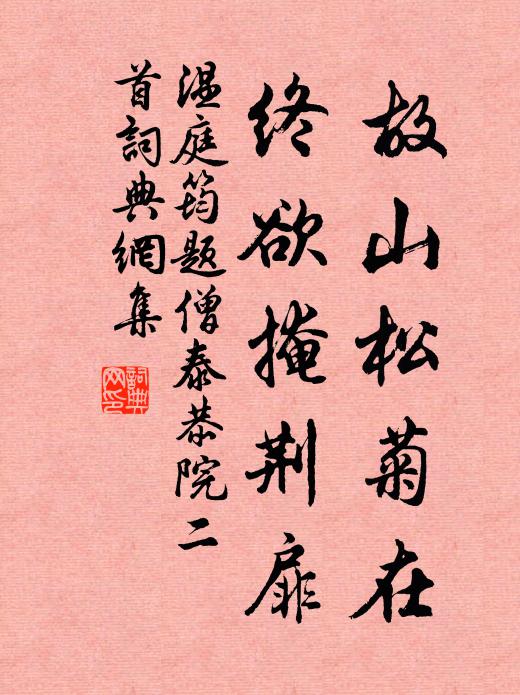 故山松菊在
终欲掩荆扉
温庭筠题僧泰恭院二
首词典網集
詞典網印